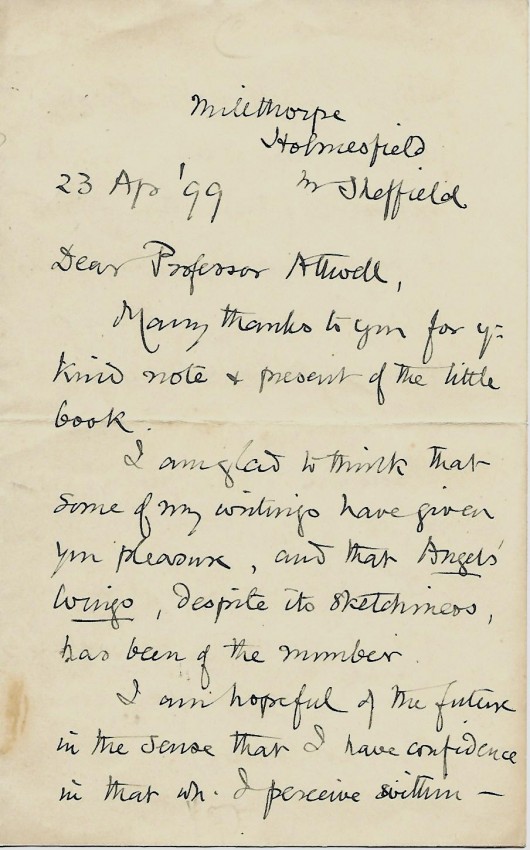 Millthorpe
Holmesfield
23 Apr '99 Nr Sheffield
Dear Professor Attwell,
Many thanks to you for yr
kind note & present of the little
book.
I am glad to think that
some of my writings have given
you pleasure, and that Angels'
Wings, despite its sketchiness,
has been of the number.
I am hopeful of the future
in the sense that I have confidence
in that wh. I perceive within —